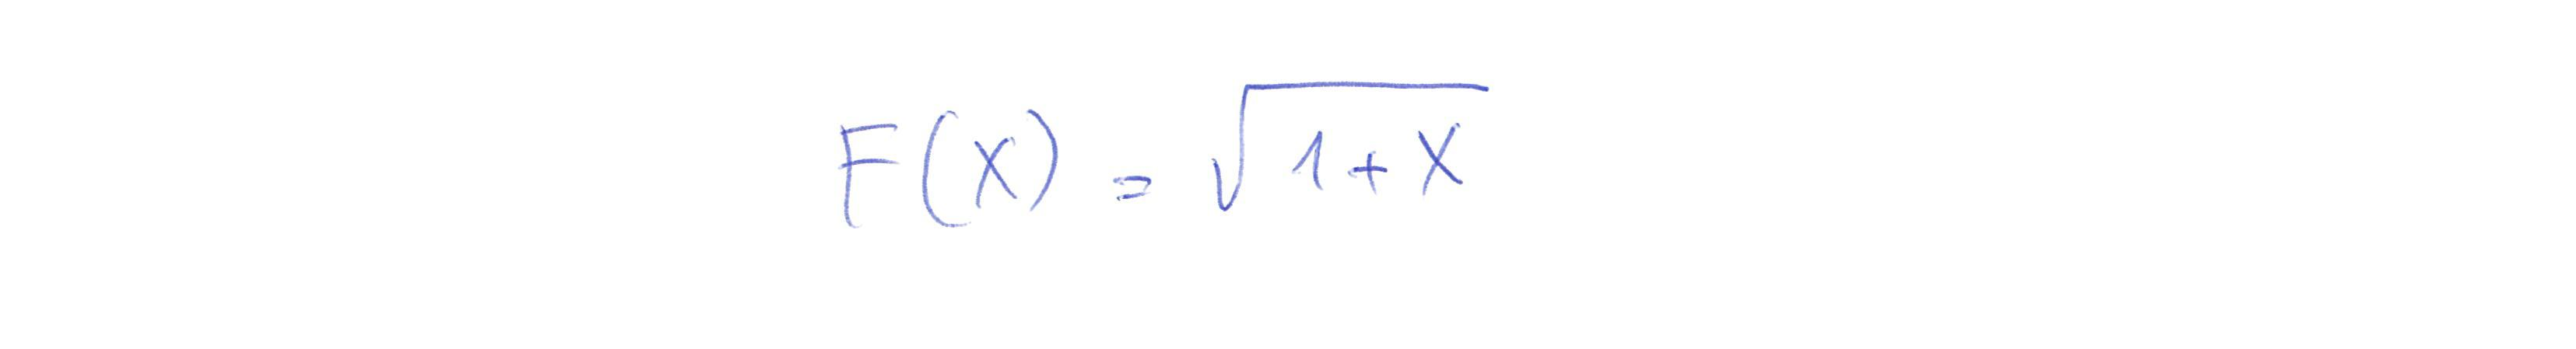 F(x) = √(1+x)